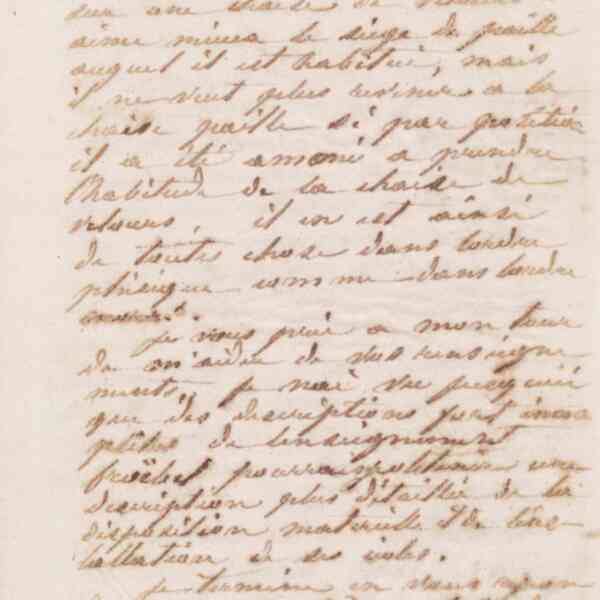 sur une chaise de velours
aime mieux le siege de paille
auquel il est habitué, mais
il ne veut plus revenir a la
chaise paille si par
il a été amené a prendre
l'habitude de la chaise de
velours, il en est ainsi
de toutes chose dans l'ordre
phisique comme dans l'ordre
moral.
je vous prie a mon tour
de m'aider de vos renseigne
ments, je n'ai vu jusqu'ici
que des descriptions fort incom
plètes de l'enseignement
froëbel pourrais je obtenir une
description plus détaillée de la
disposition materielle et de l'ins-
tallation de ses écoles.
je termine en vous